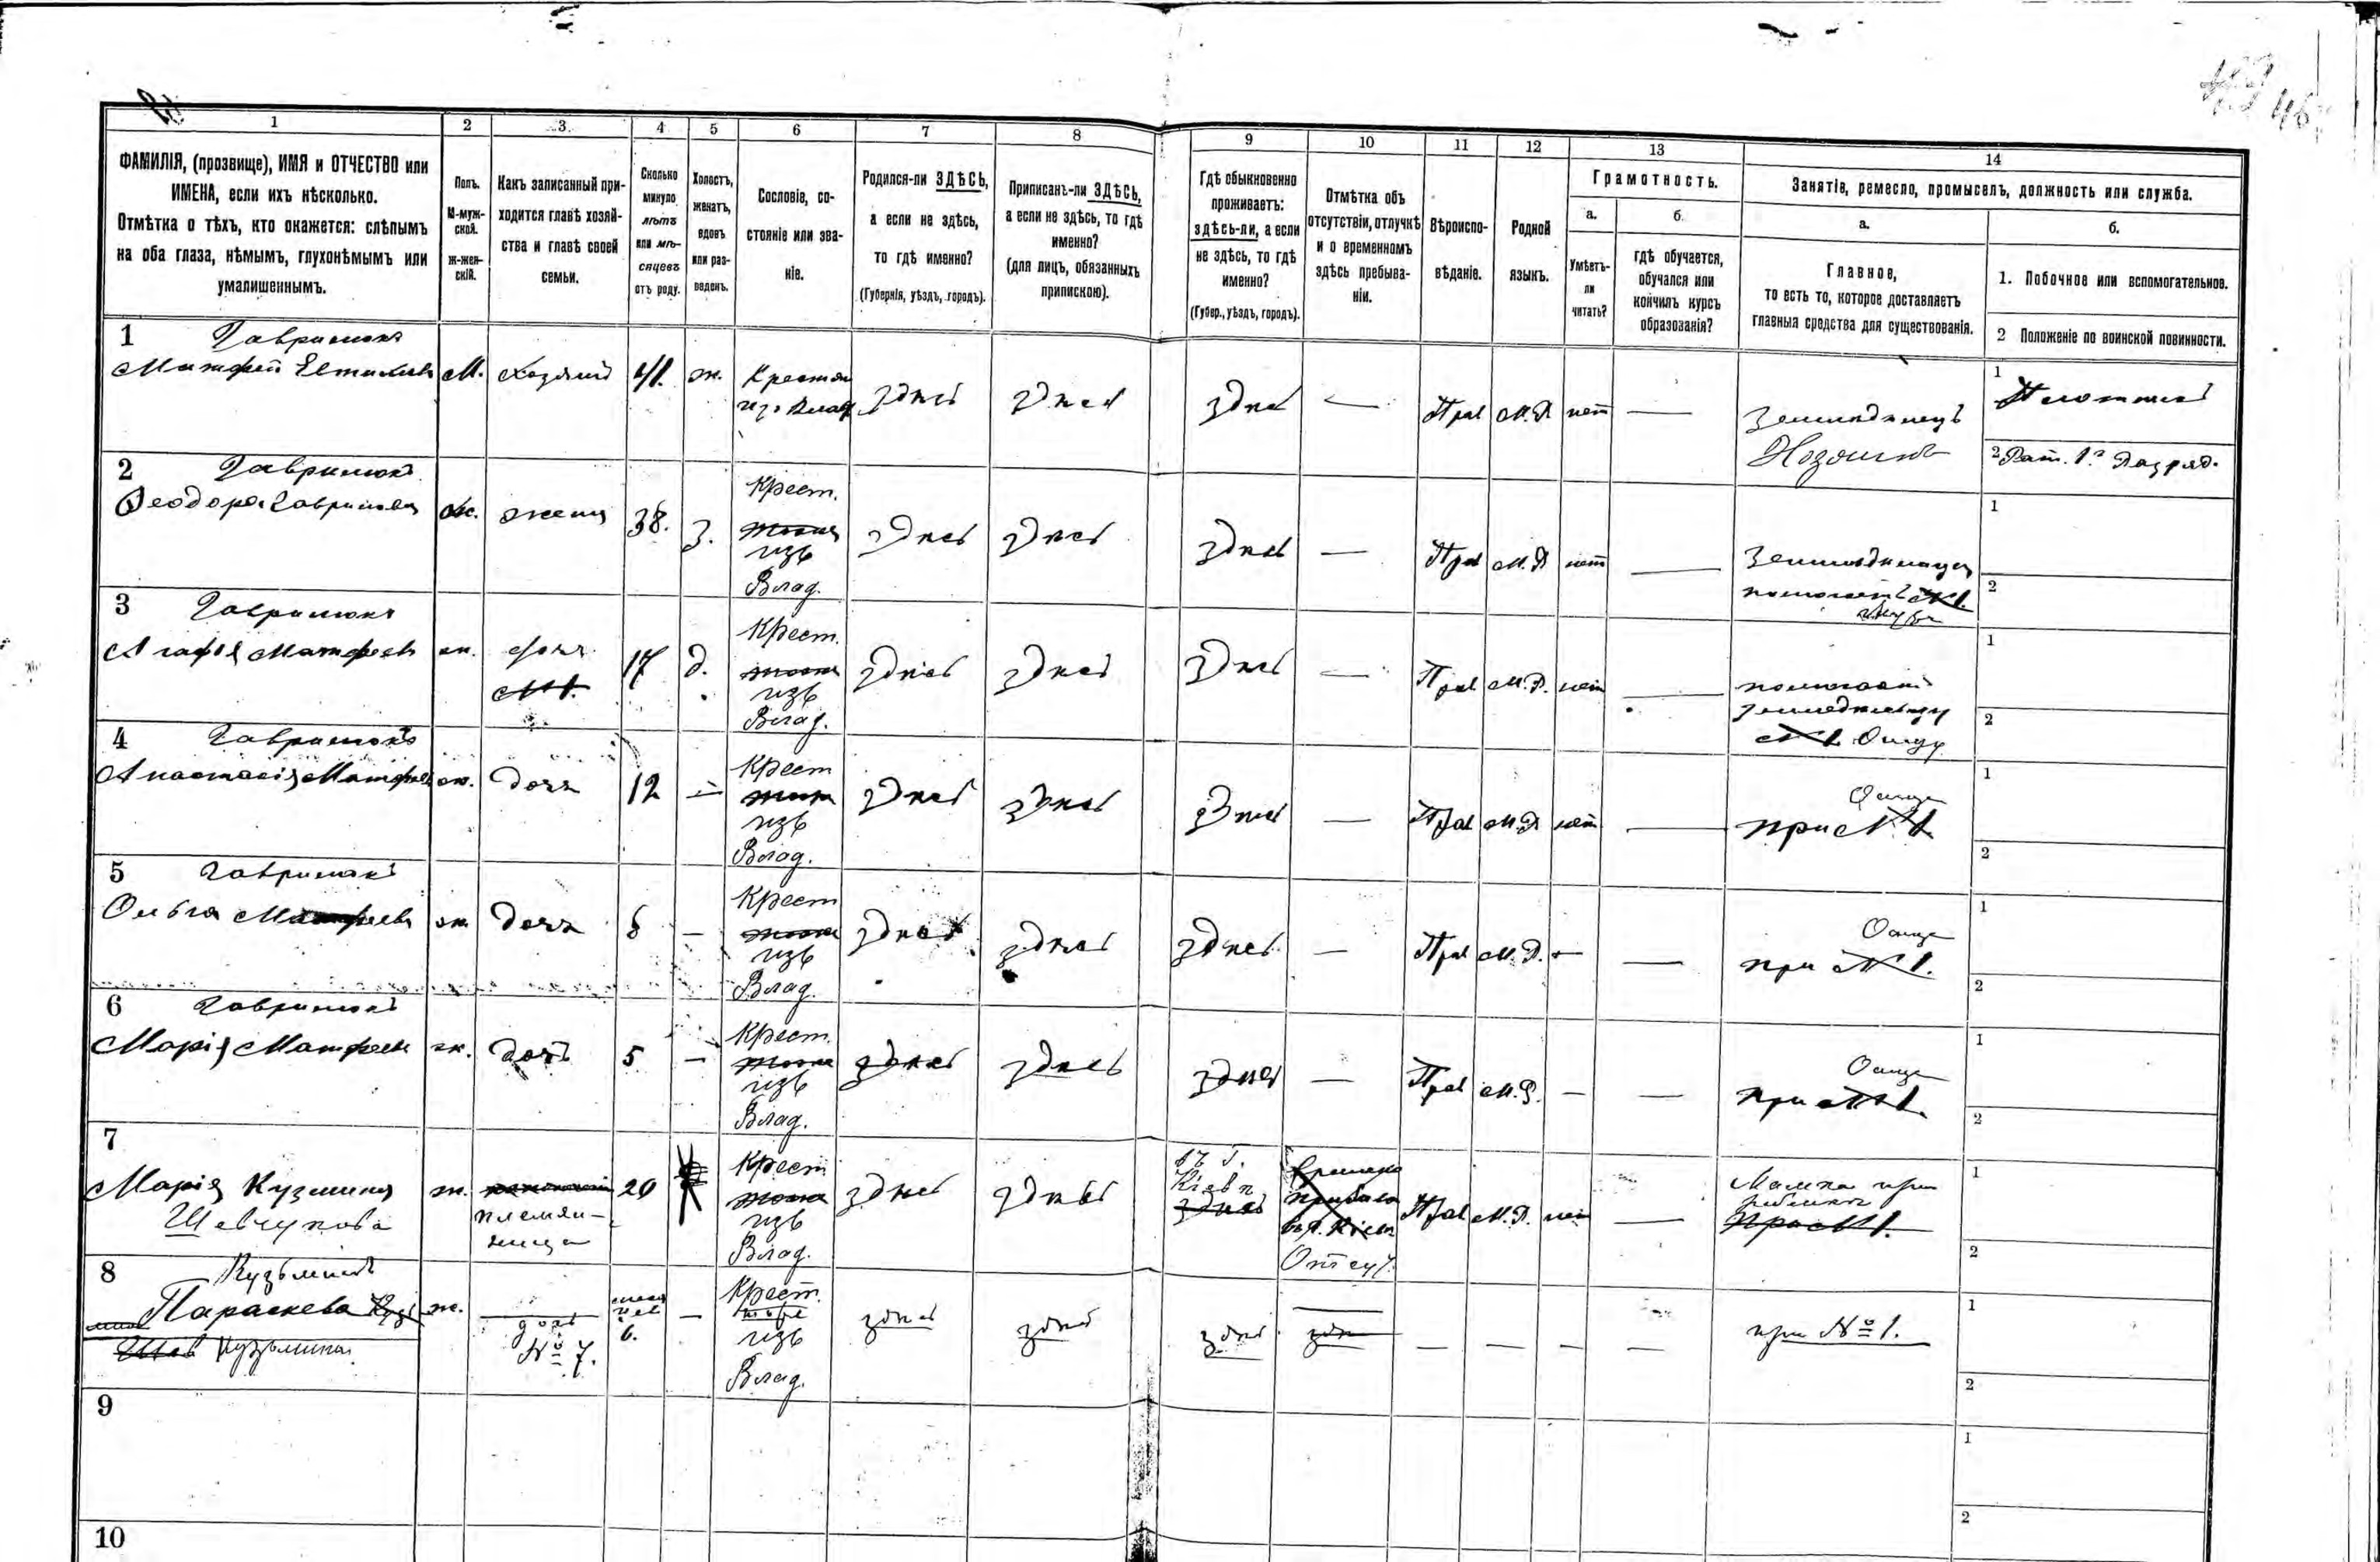 1
2
3
4
5
6
7
8
9
10
11
12
13
14
ФАМИЛІЯ, (прозвище), ИМЯ и ОТЧЕСТВО или
ИМЕНА, если ихъ нѣсколько.
Отмѣтка о тѣхъ, кто окажется: слѣпымъ
на оба глаза, нѣмымъ, глухонѣмымъ или
умалишеннымъ.
Полъ.
М-муж-
ской.
ж-жен-
скій.
Какъ записанный при-
ходится главѣ хозяй-
ства и главѣ своей
семьи.
Сколько
минуло
лѣтъ
или мѣ-
сяцевъ
отъ роду.
Холостъ,
женатъ,
вдовъ
или раз-
веденъ.
Сословіе, со-
стояніе или зва-
ніе.
Родился-ли ЗДѢСЬ,
а если не здѣсь,
то гдѣ именно?
(Губернія, уѣздъ, городъ).
Приписанъ-ли ЗДѢСЬ,
а если не здѣсь, то гдѣ
именно?
(для лицъ, обязанныхъ
припискою).
Гдѣ обыкновенно
проживаетъ:
здѣсь-ли, а если
не здѣсь, то гдѣ
именно?
(Губер., уѣздъ, городъ).
Отмѣтка объ
отсутствіи, отлучкѣ
и о временномъ
здѣсь пребыва-
ніи.
Вѣроиспо-
вѣданіе.
Родной
языкъ.
Грамотность.
а.
Умѣетъ-
ли
читать?
б.
гдѣ обучается,
обучался или
кончилъ курсъ
образованія?
Занятіе, ремесло, промыселъ, должность или служба.
а.
Главное,
то есть то, которое доставляетъ
главныя средства для существованія.
б.
1. Побочное или вспомогательное.
2 Положеніе по воинской повинности.
1 Гаврилюкъ
Матфей М. Хозяинъ 41. ж. Крестьян
изъ Влад здѣсь здѣсь здѣсь — Прав М.Р. нет — Земледѣлецъ
Хозяинъ
1
2 Рат. 1го Разряд.
2 Гаврилюкъ
Феодора Гаврилова ж. жена 38. з. Крест.
изъ
Влад. здѣсь здѣсь здѣсь — Прав М.Р. нет — Земледѣлица
1
2
3 Гаврилюкъ
Агафія Матфеев ж. дочь 17 д. Крест.
изъ
Влад. здѣсь здѣсь здѣсь — Прав М.Р. нет — помогает
земледѣльцу
№ 1 Отцу
1
2
4 Гаврилюкъ
Анастасія Матфеев ж. дочь 12 — Крест
изъ
Влад. здѣсь здѣсь здѣсь — Прав М.Р. нет — Отце
при № 1
1
2
5 Гаврилюкъ
Ольга Матфеева ж. дочь 8 — Крест
изъ
Влад. здѣсь здѣсь здѣсь — Прав М.Р. — — Отце
при № 1.
1
2
6 Гаврилюкъ
Марія Матфеев ж. дочь 5 — Крест.
изъ
Влад. здѣсь здѣсь здѣсь — Прав М.Р. — — Отце
при № 1.
1
2
7
Марія Кузмина
Шевчукова ж. племян-
ница 20 Крест
изъ
Влад. здѣсь здѣсь въ г.
Кіевѣ
здѣсь
Отсут. Прав М.Р. нет — Мамка при
ребенкѣ
при № 1.
1
2
8 Кузьминъ
Параскева
Кузьмина ж. дочь
№ 7. 6. — Крест.
изъ
Влад. здѣсь здѣсь здѣсь — — — — — при № 1.
1
2
9
1
2
10